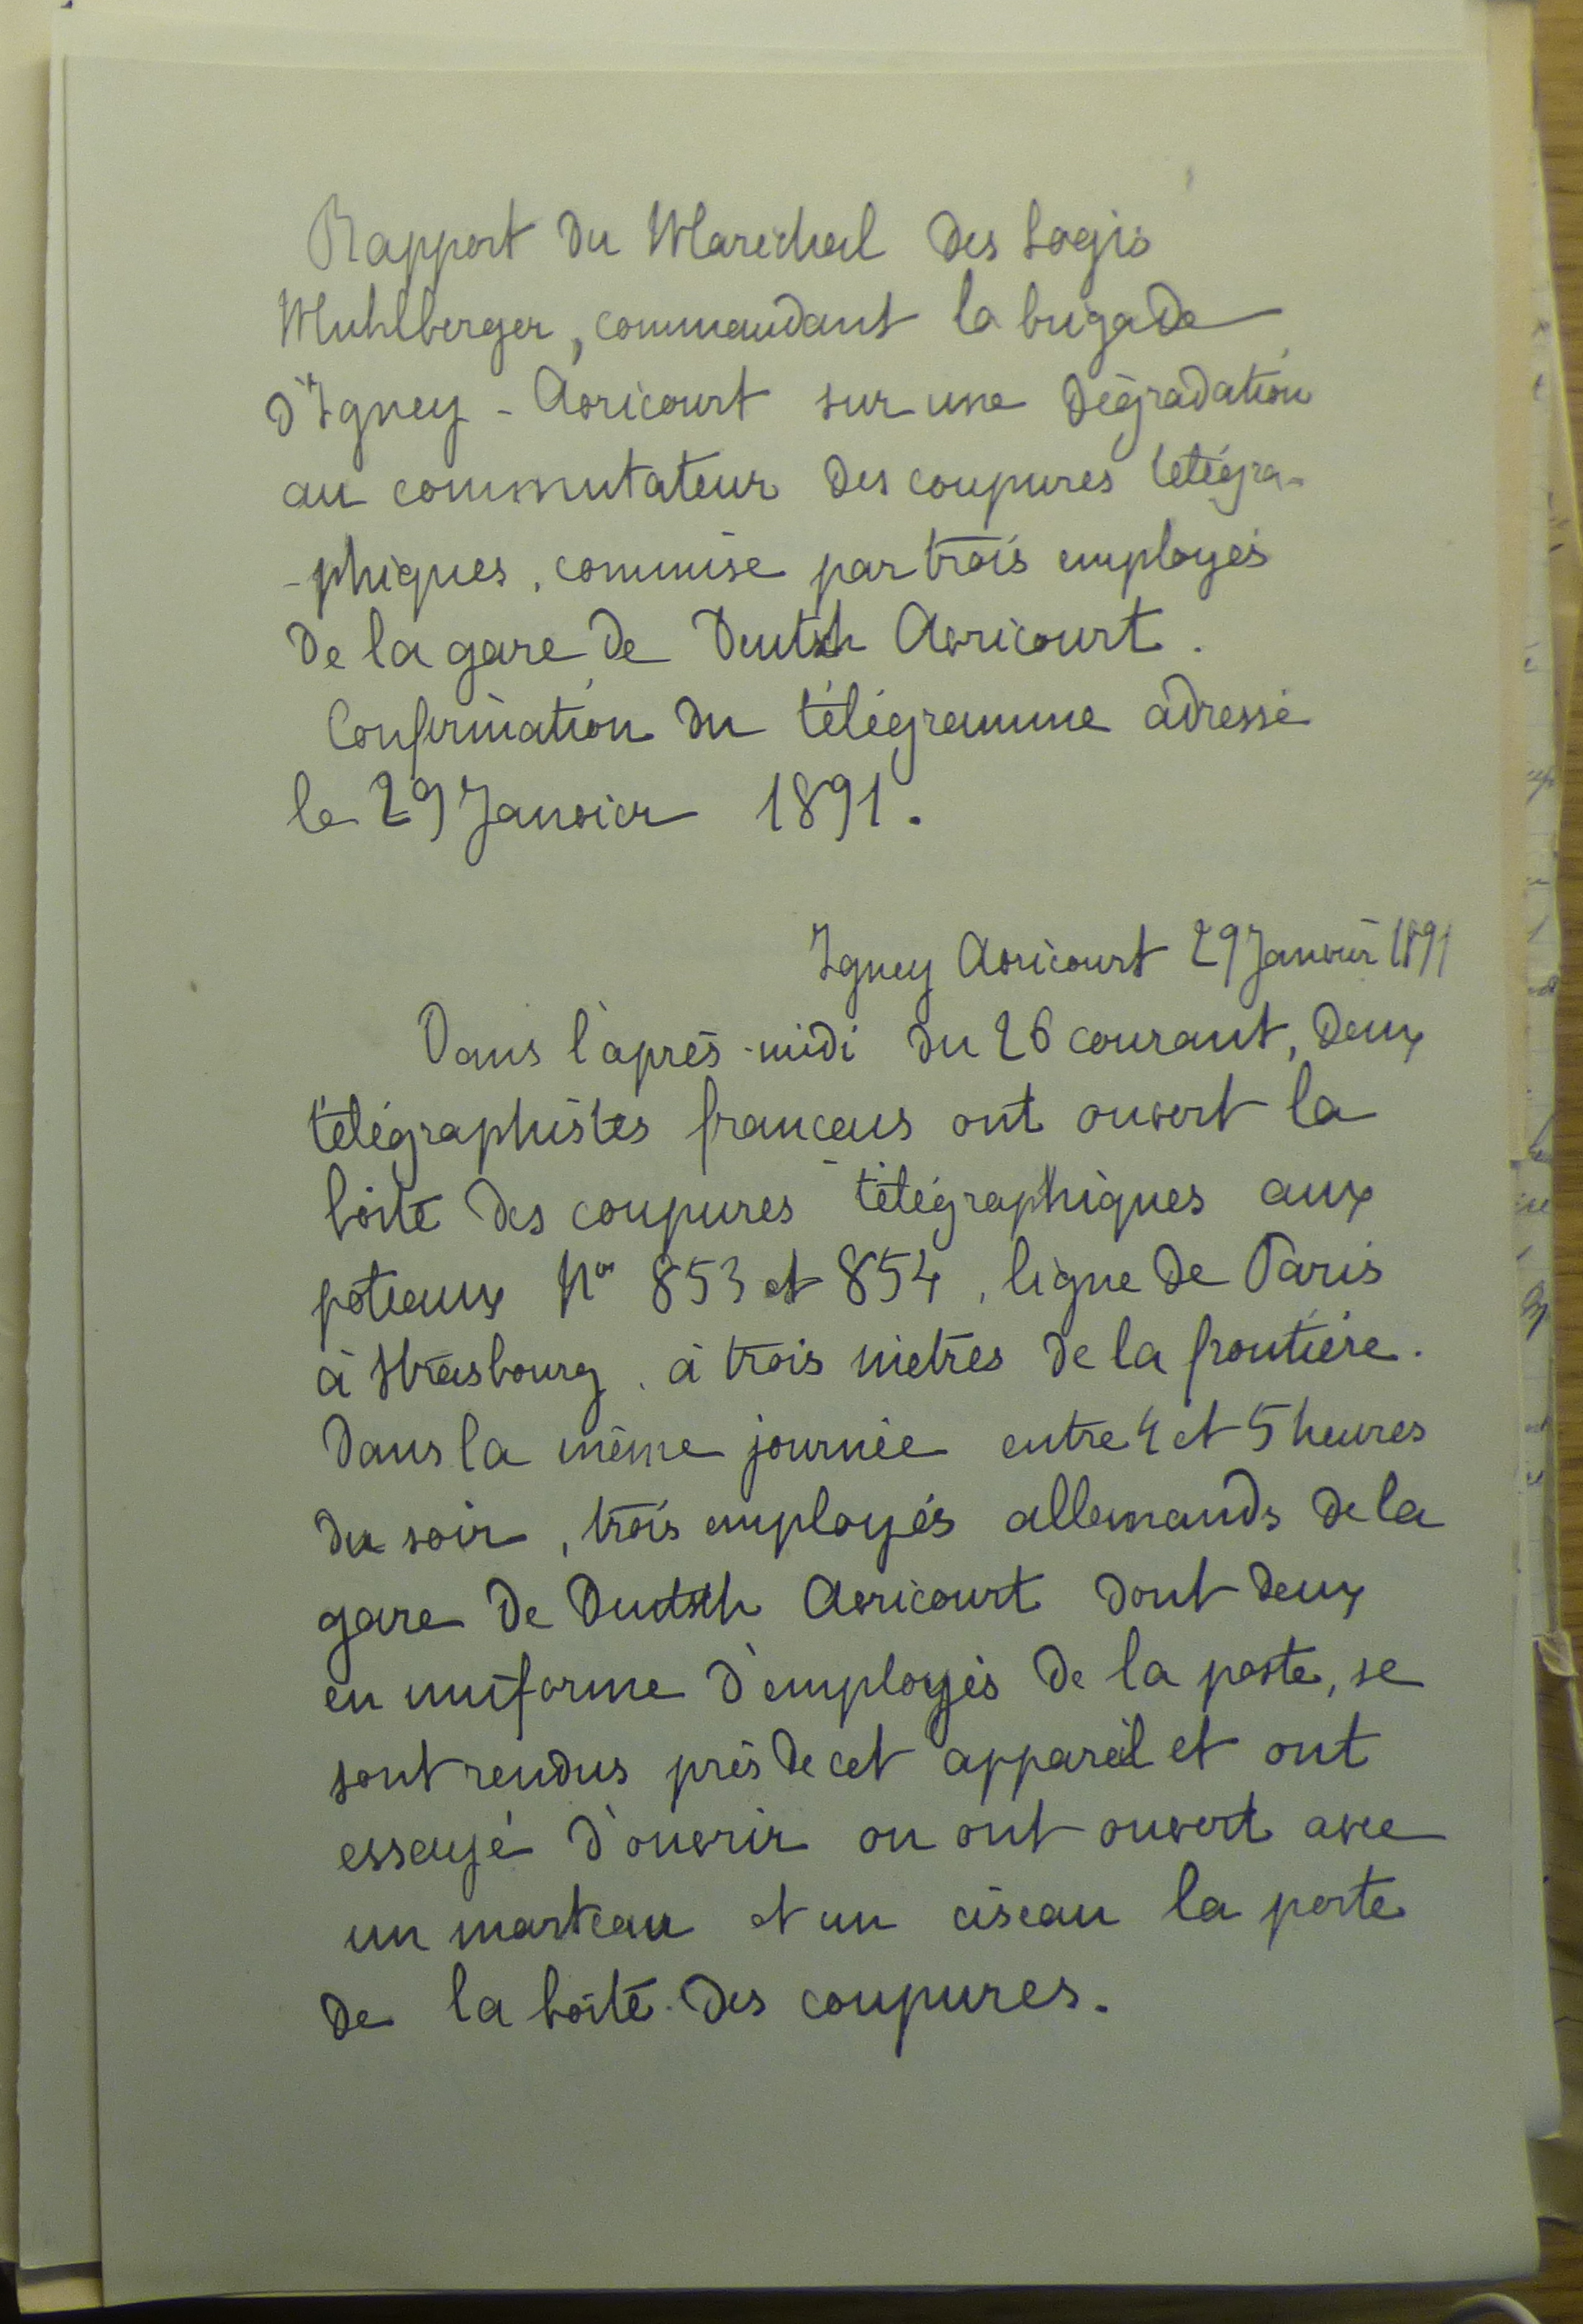 Rapport du Maréchal des Logis
Muhlberger, commandant la brigade
d'Igney-Avricourt sur une dégradation
au commutateur des coupures télégra-
-phiques, commise par trois employés
de la gare de Deutsch Avricourt.
Confirmation du télégramme adressé
le 29 Janvier 1891.
Igney Avricourt 29 Janvier 1891
Dans l'après-midi du 26 courant, deux
télégraphistes français ont ouvert la
boîte des coupures télégraphiques aux
poteaux Nos 853 et 854, ligne de Paris
à Strasbourg, à trois mètres de la frontière.
Dans la même journée entre 4 et 5 heures
du soir, trois employés allemands de la
gare de Deutsch Avricourt dont deux
en uniforme d'employés de la poste, se
sont rendus près de cet appareil et ont
essayé d'ouvrir ou ont ouvert avec
un marteau et un ciseau la porte
de la boîte des coupures.